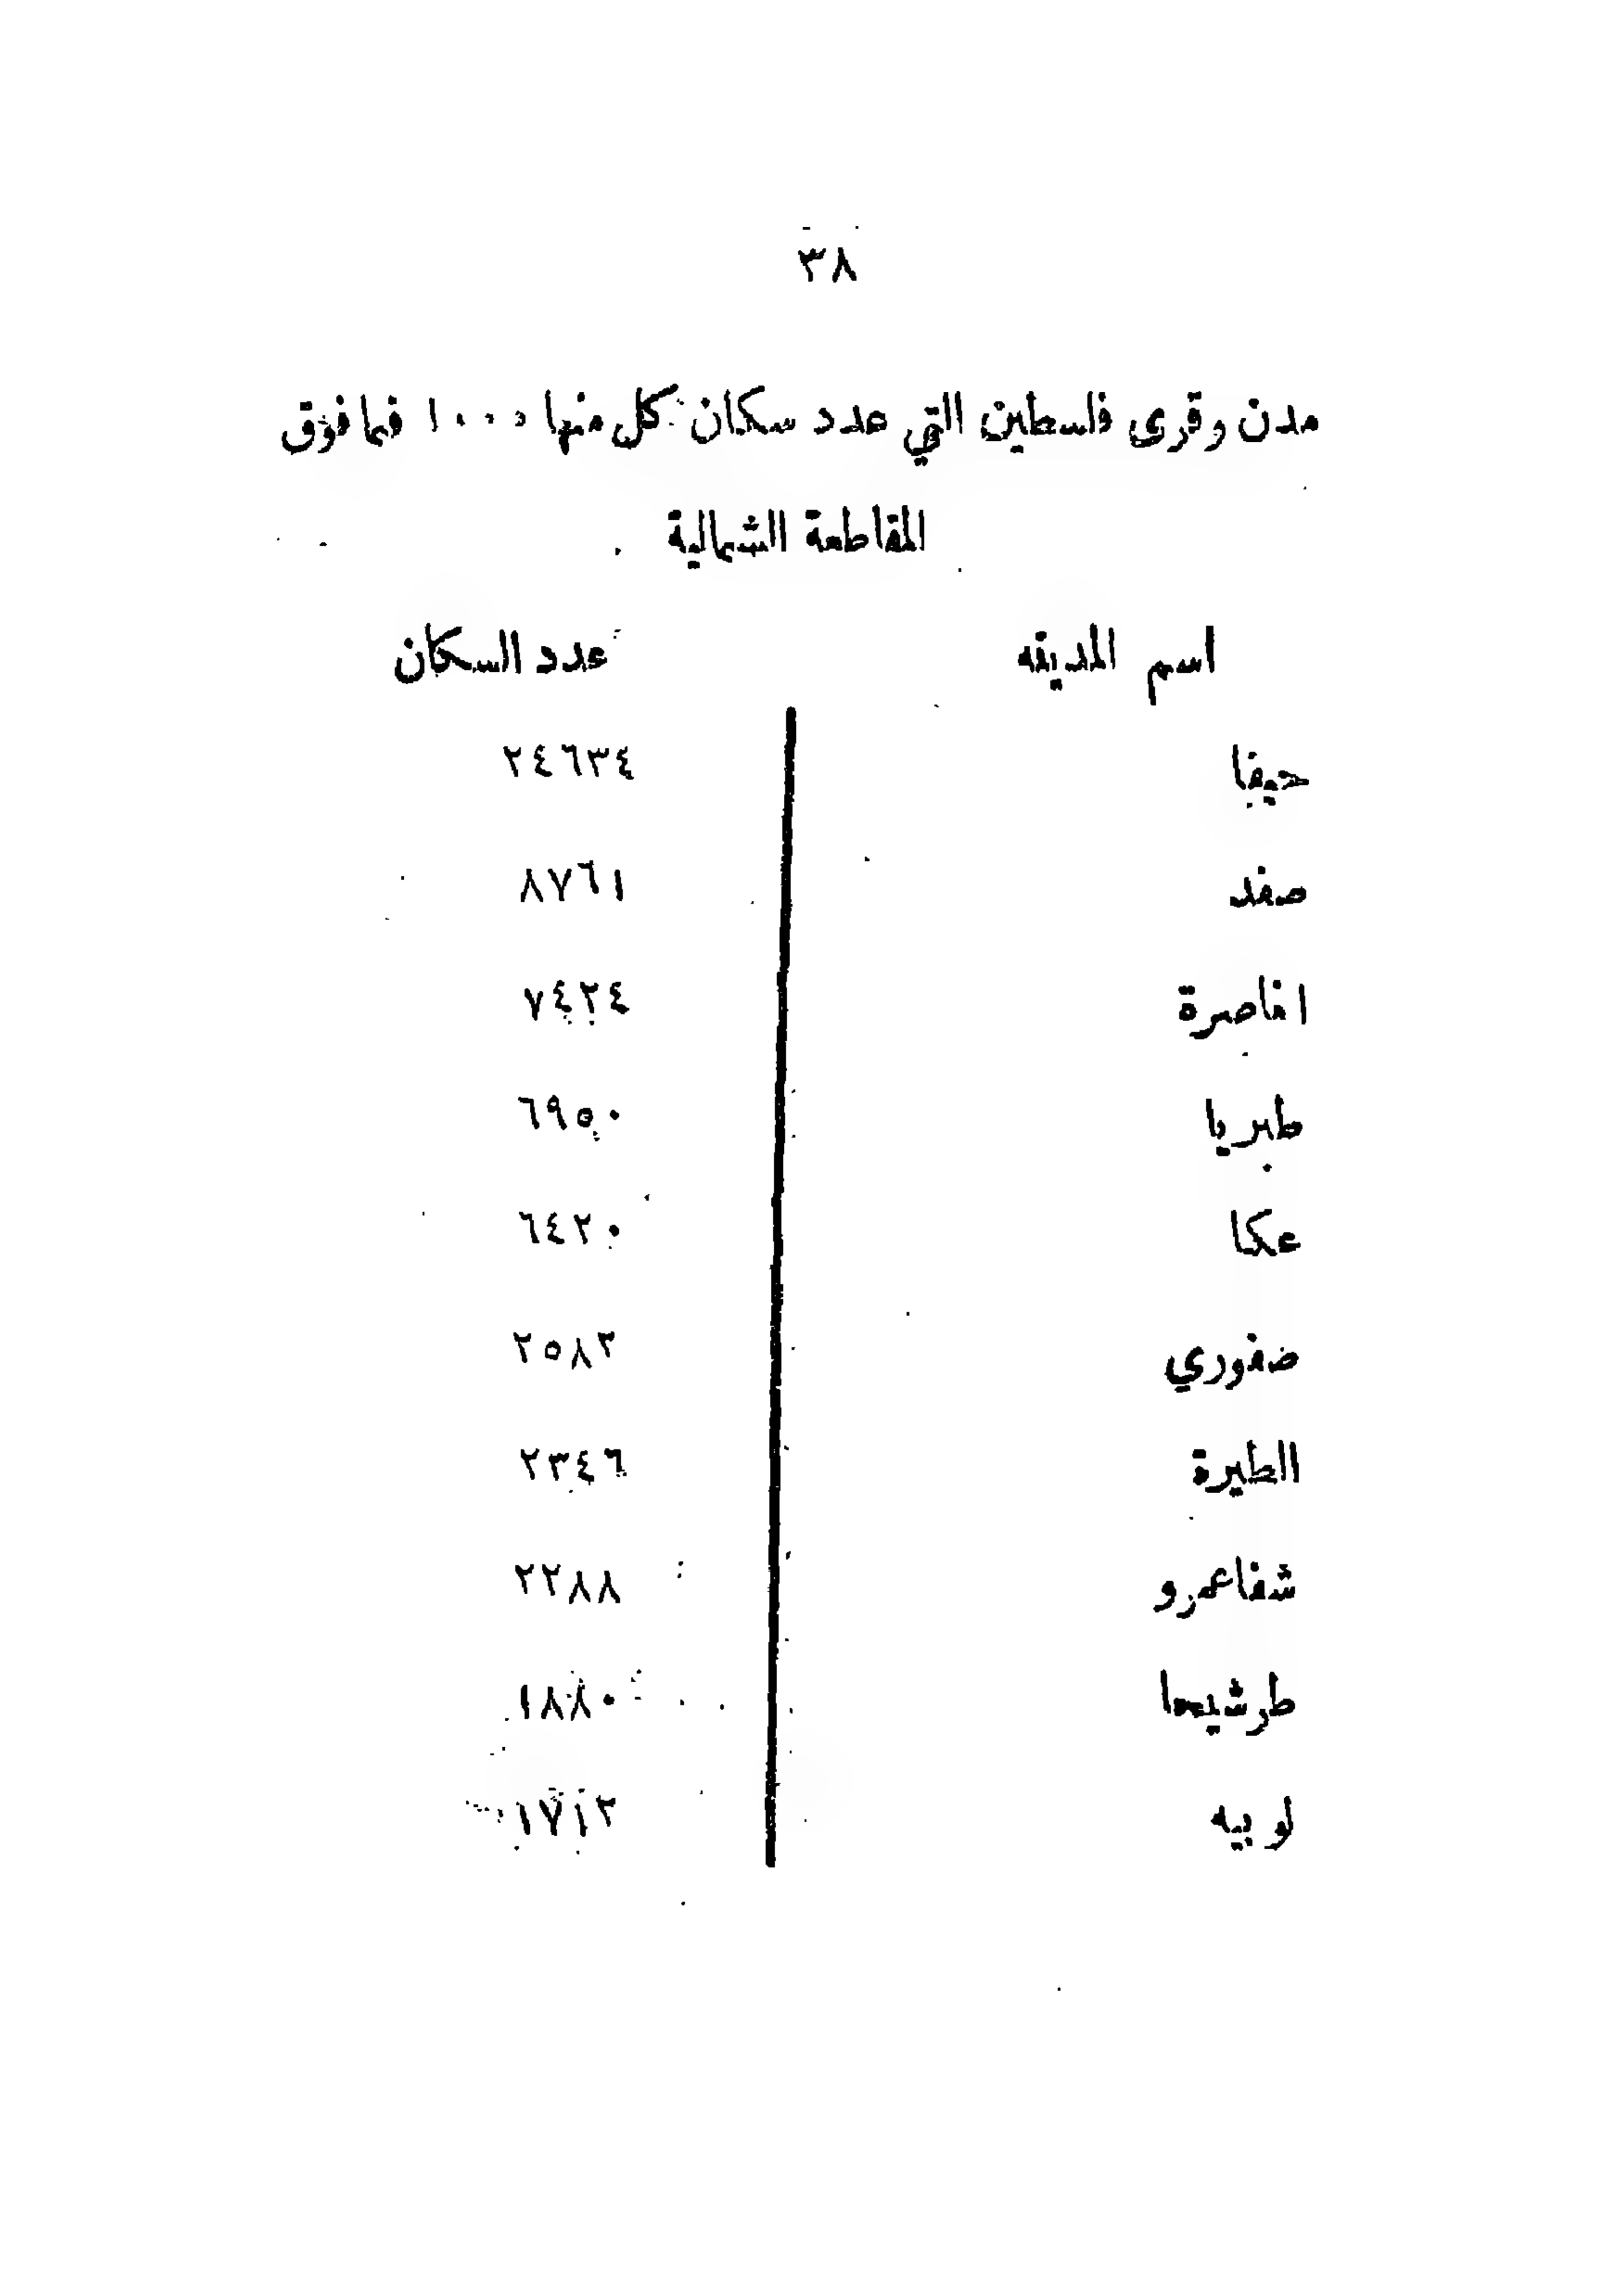 ٣٨
مدن وقرى فلسطين التي عدد سكان كل منها ١٠٠٠ فما فوق
المقاطعة الشمالية
اسم المدينه عدد السكان
حيفا ٢٤٦٣٤
صفد ٨٧٦١
اناصرة ٧٤٢٤
طبريا ٦٩٥٠
عكا ٦٤٢٠
ضفوري ٢٥٨٢
الطيرة ٢٣٤٦
شفاعمرو ٢٢٨٨
طرشيحا ١٨٨٠
لوبيه ١٧١٢